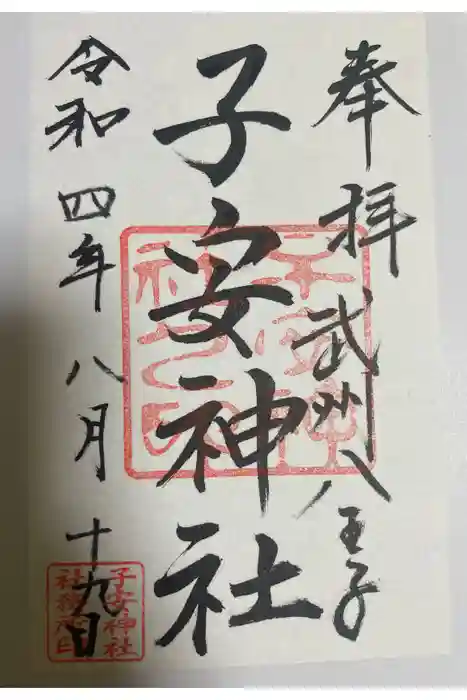 奉拝
武州八王子
子安神社
令和四年八月十九日
子安神社
社務所印